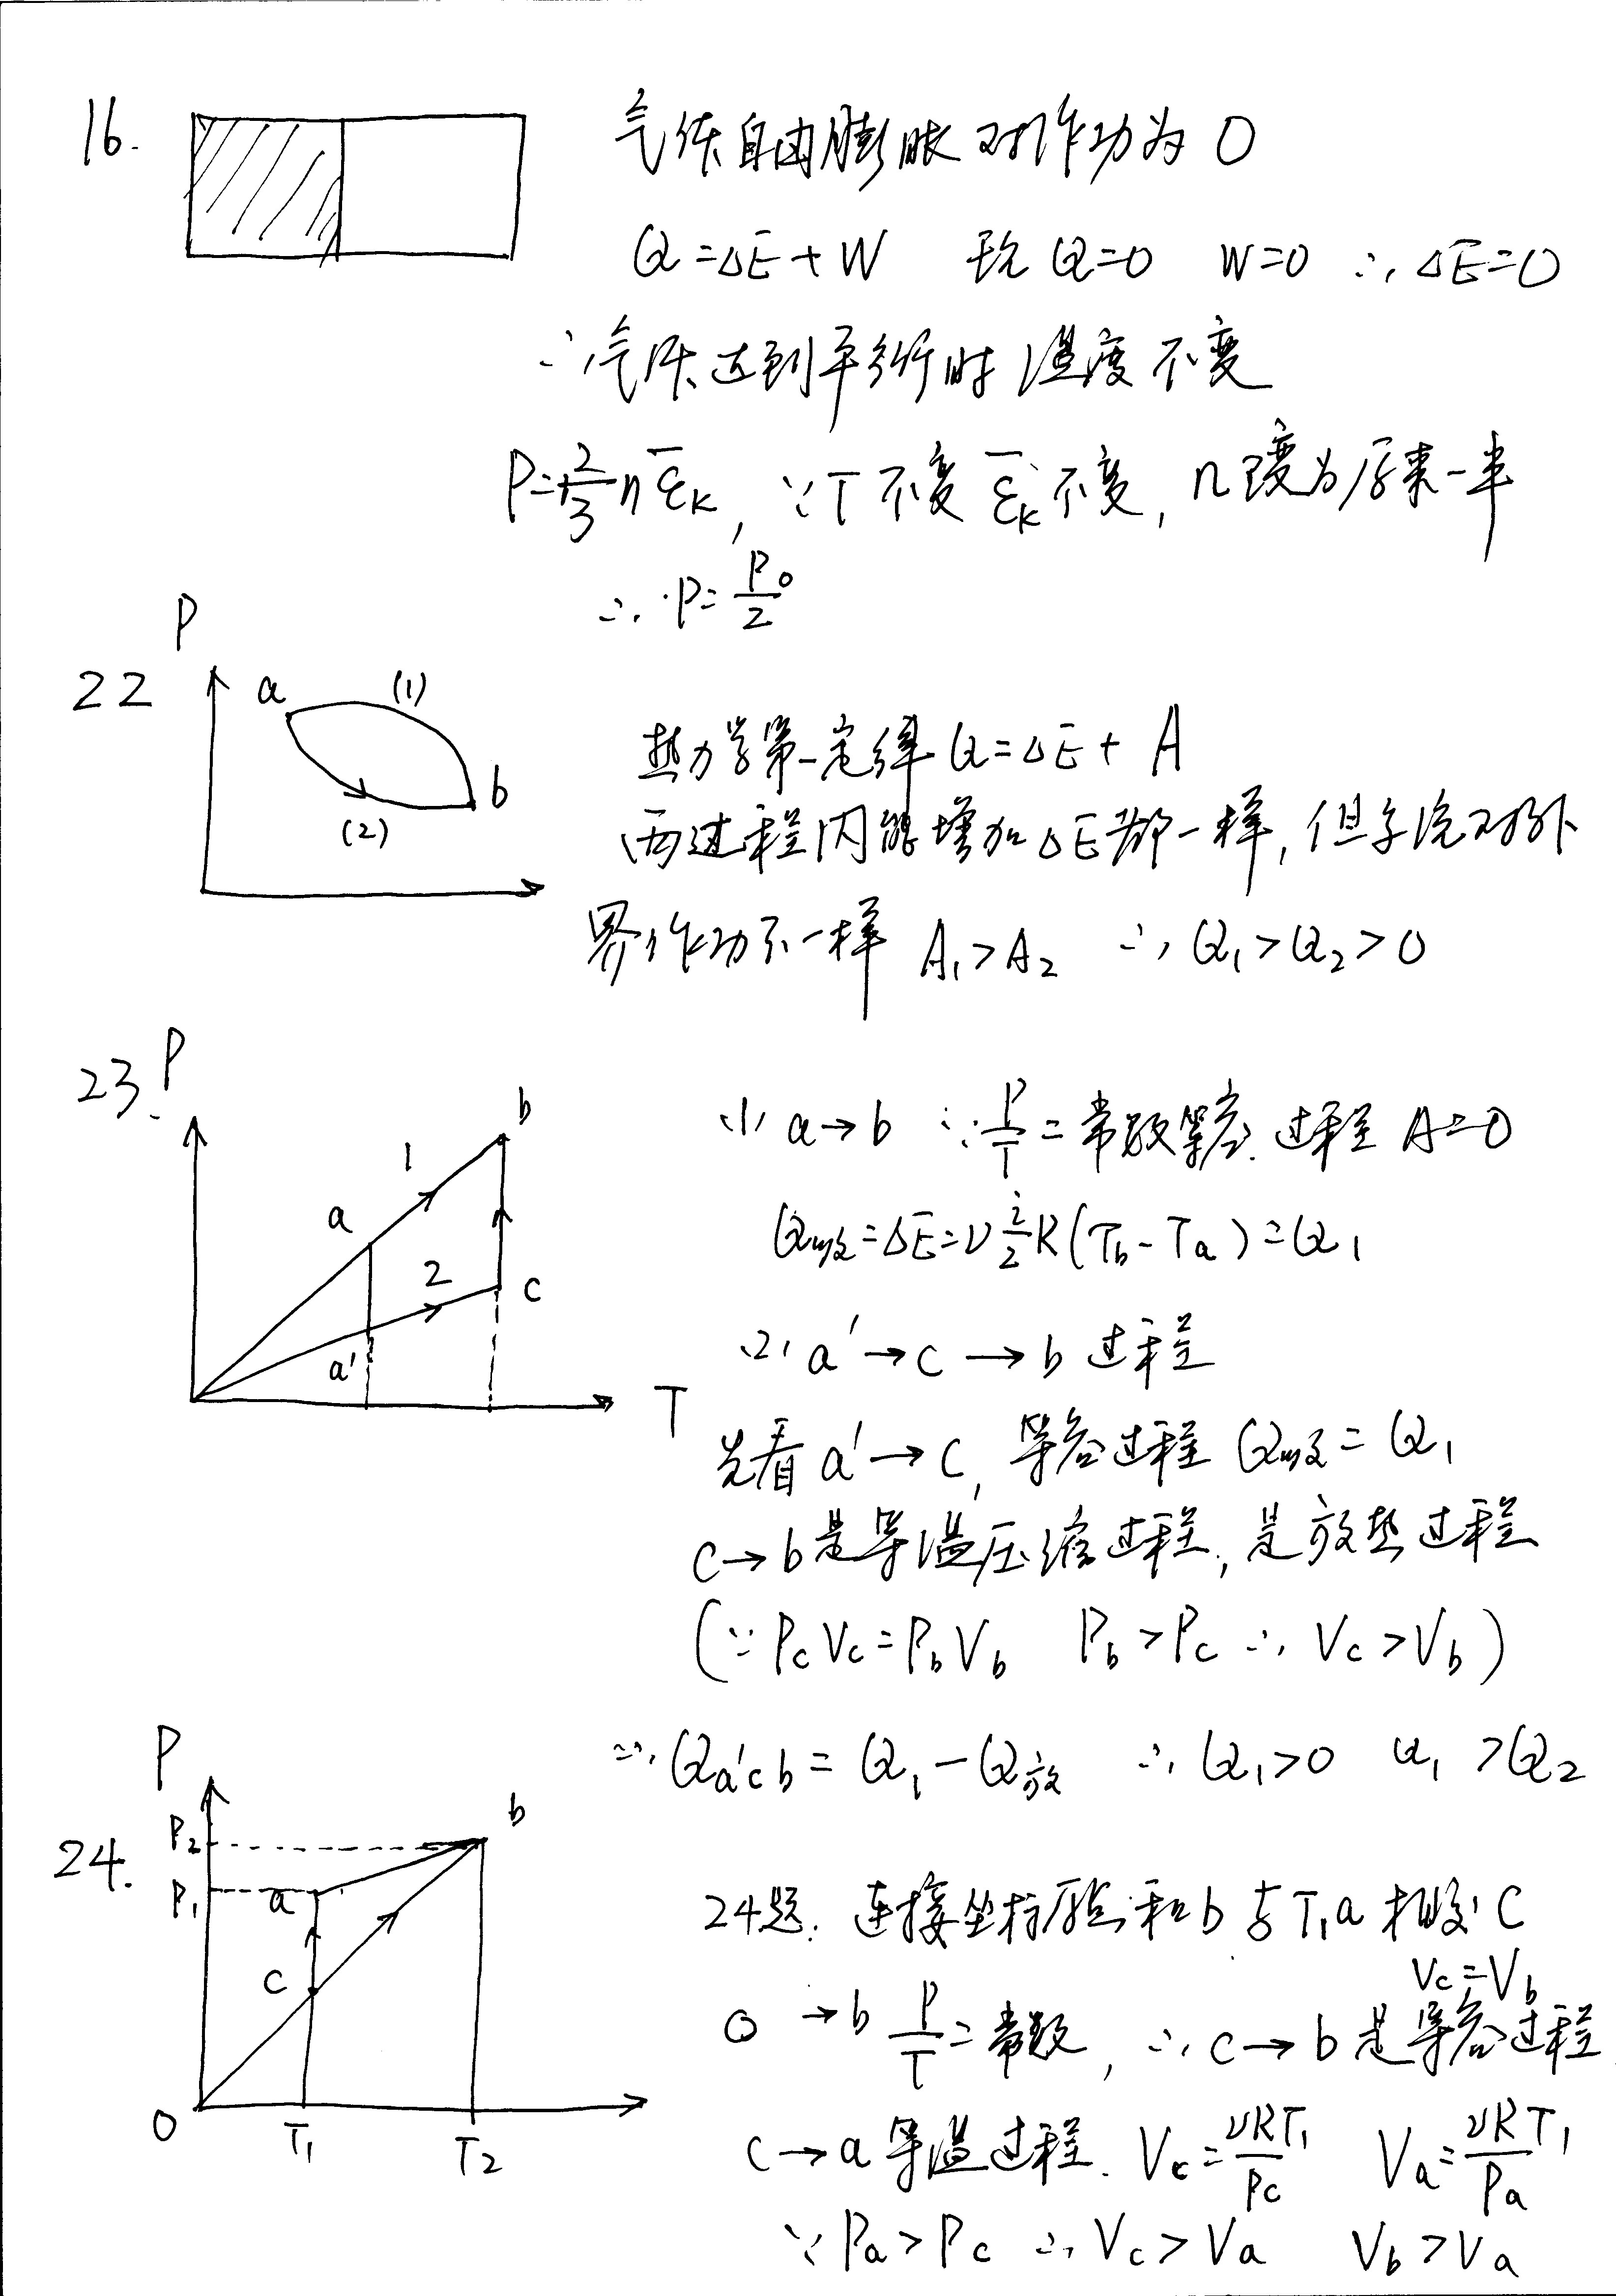 16.
气体自由膨胀对外作功为0
Q=ΔE+W 现Q=0 W=0 ∴ΔE=0
∴气体达到平衡时温度不变
P=2/3 n ε̄k, ∵T不变 ε̄k不变, n变为原来一半
∴P=P0/2
22
P
a
(1)
b
(2)
热力学第一定律Q=ΔE+A
两过程内能增加ΔE都一样,但系统对外
界作功不一样 A1>A2 ∴Q1>Q2>0
23.
P
b
1
a
2
c
a'
T
(1) a→b ∵P/T=常数等容过程 A=0
Q吸=ΔE=ν i/2 R(Tb-Ta)=Q1
(2) a'→c→b过程
先看a'→c, 等容过程Q吸=Q1
c→b是等温压缩过程,是放热过程
(∵PcVc=PbVb Pb>Pc ∴Vc>Vb)
∴Qa'cb=Q1-Q放 ∴Q1>0 Q1>Q2
24.
P
P2
b
P1
a
c
O
T1
T2
24题. 连接坐标原点和b与T1a相交C
Vc=Vb
O→b P/T=常数, ∴c→b是等容过程
c→a等温过程. Vc=νRT1/Pc Va=νRT1/Pa
∵Pa>Pc ∴Vc>Va Vb>Va